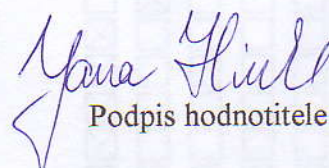 Jana
Podpis hodnotitele